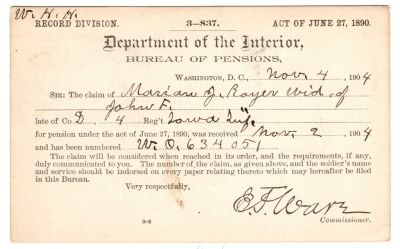 W. H. H.
RECORD DIVISION. 3-837. ACT OF JUNE 27, 1890.
Department of the Interior,
BUREAU OF PENSIONS,
WASHINGTON, D. C., Nov. 4, 1904
SIR: The claim of Marian J. Royer wid. of
John F.
late of Co. D. 4 Reg't Iowa Inf.
for pension under the act of June 27, 1890, was received Nov. 2 1904
and has been numbered W. O. 634051
The claim will be considered when reached in its order, and the requirements, if any,
duly communicated to you. The number of the claim, as given above, and the soldier's name
and service should be indorsed on every paper relating thereto which may hereafter be filed
in this Bureau.
Very respectfully,
E. F. Ware
0-8 Commissioner.